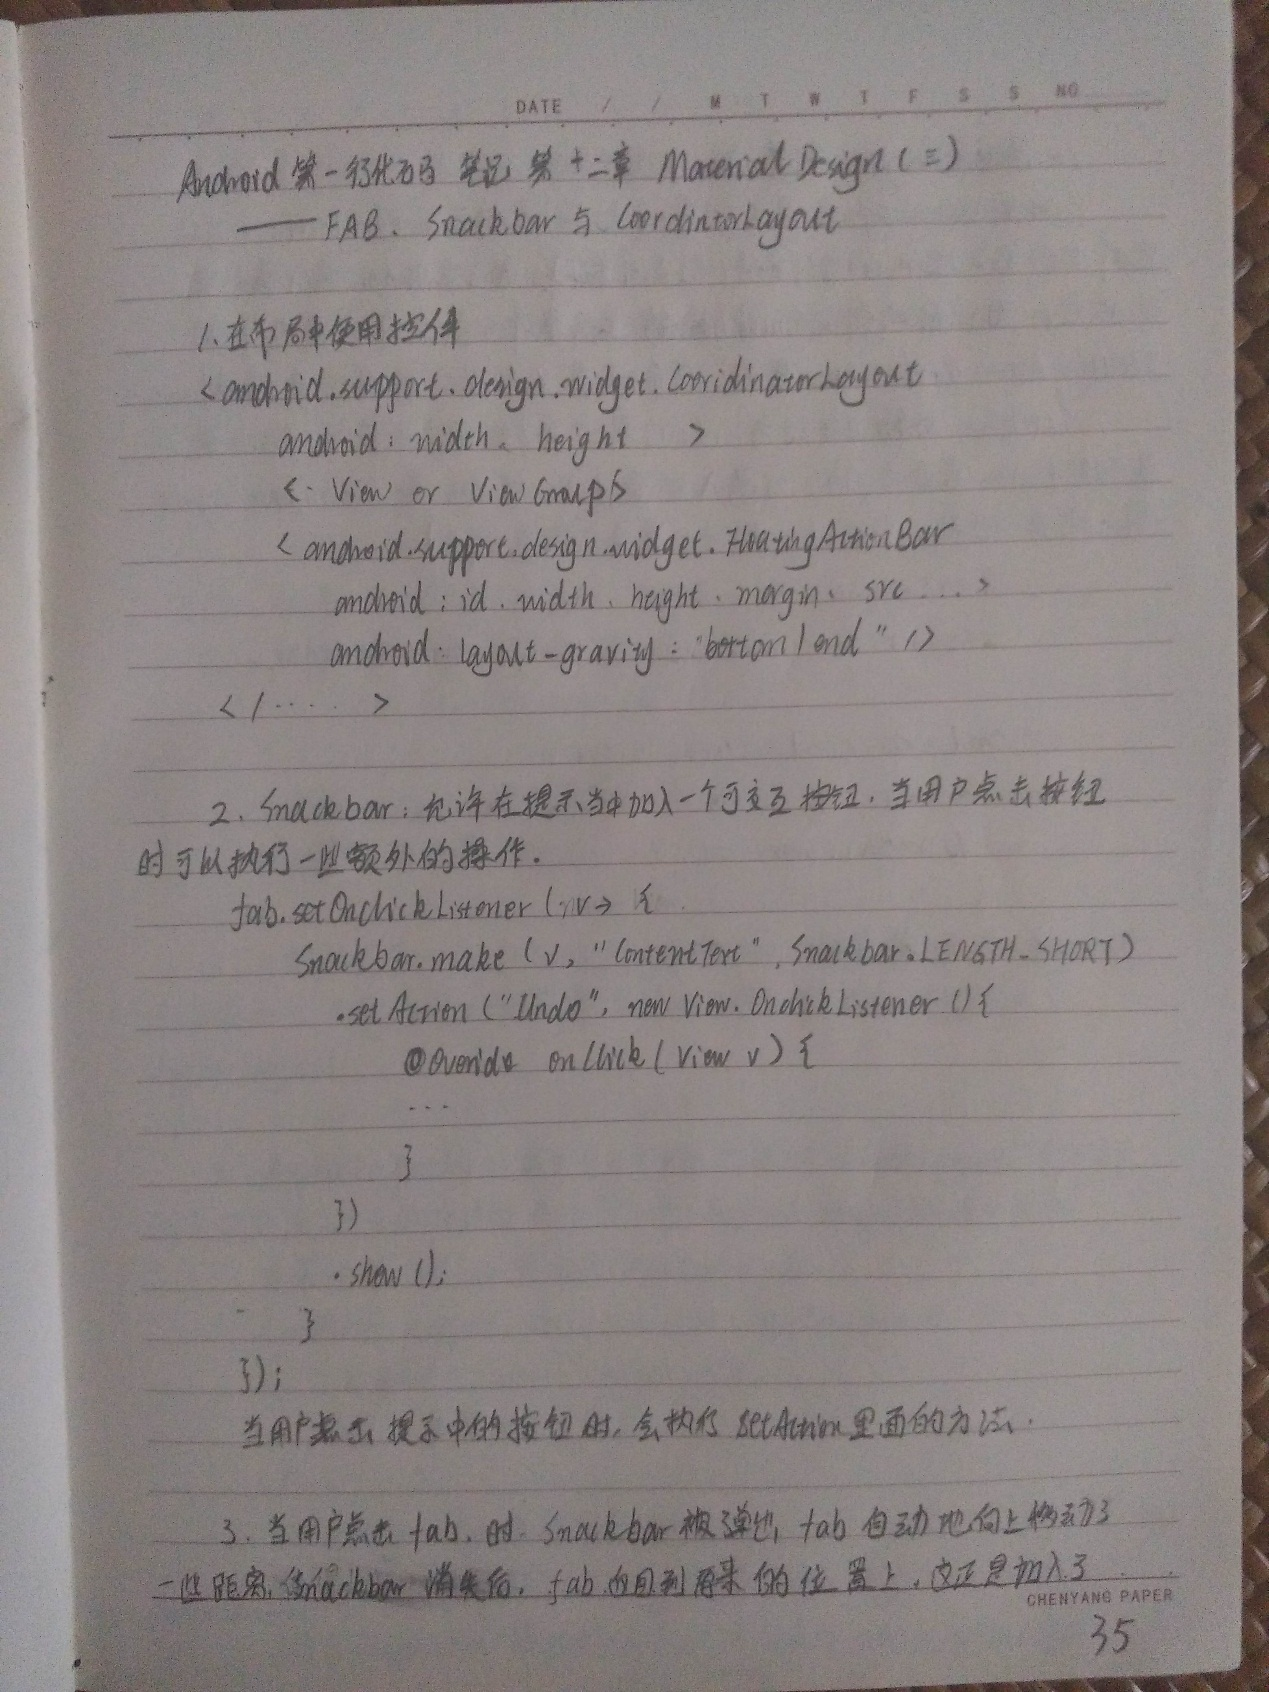 DATE / / M T W T F S S NO
Android 第一行代码 笔记 第十二章 Material Design (三)
—— FAB、Snackbar 与 CoordintorLayout
1. 在布局中使用控件
<android.support.design.widget.CooridinatorLayout
android: width、height >
<· View or ViewGroup/>
<android.support.design.widget.FloatingActionBar
android : id、width、height、margin、src ...>
android: layout-gravity : "bottom | end" />
</····· >
2. Snackbar: 允许在提示当中加入一个可交互按钮.当用户点击按钮
时可以执行一些额外的操作.
fab.setOnClickListener ( v→ {
Snackbar.make (v, "ContentText", Snackbar.LENGTH_SHORT)
.setAction ("Undo", new View.OnclickListener () {
@Overide onClick (View v) {
...
}
})
.show ();
}
});
当用户点击提示中的按钮时,会执行 setAction里面的方法.
3. 当用户点击 fab 时 Snackbar 被弹出, fab 自动地向上移动了
一些距离,当Snackbar 消失后, fab 回到原来的位置上,这正是加入了
CHENYANG PAPER
35